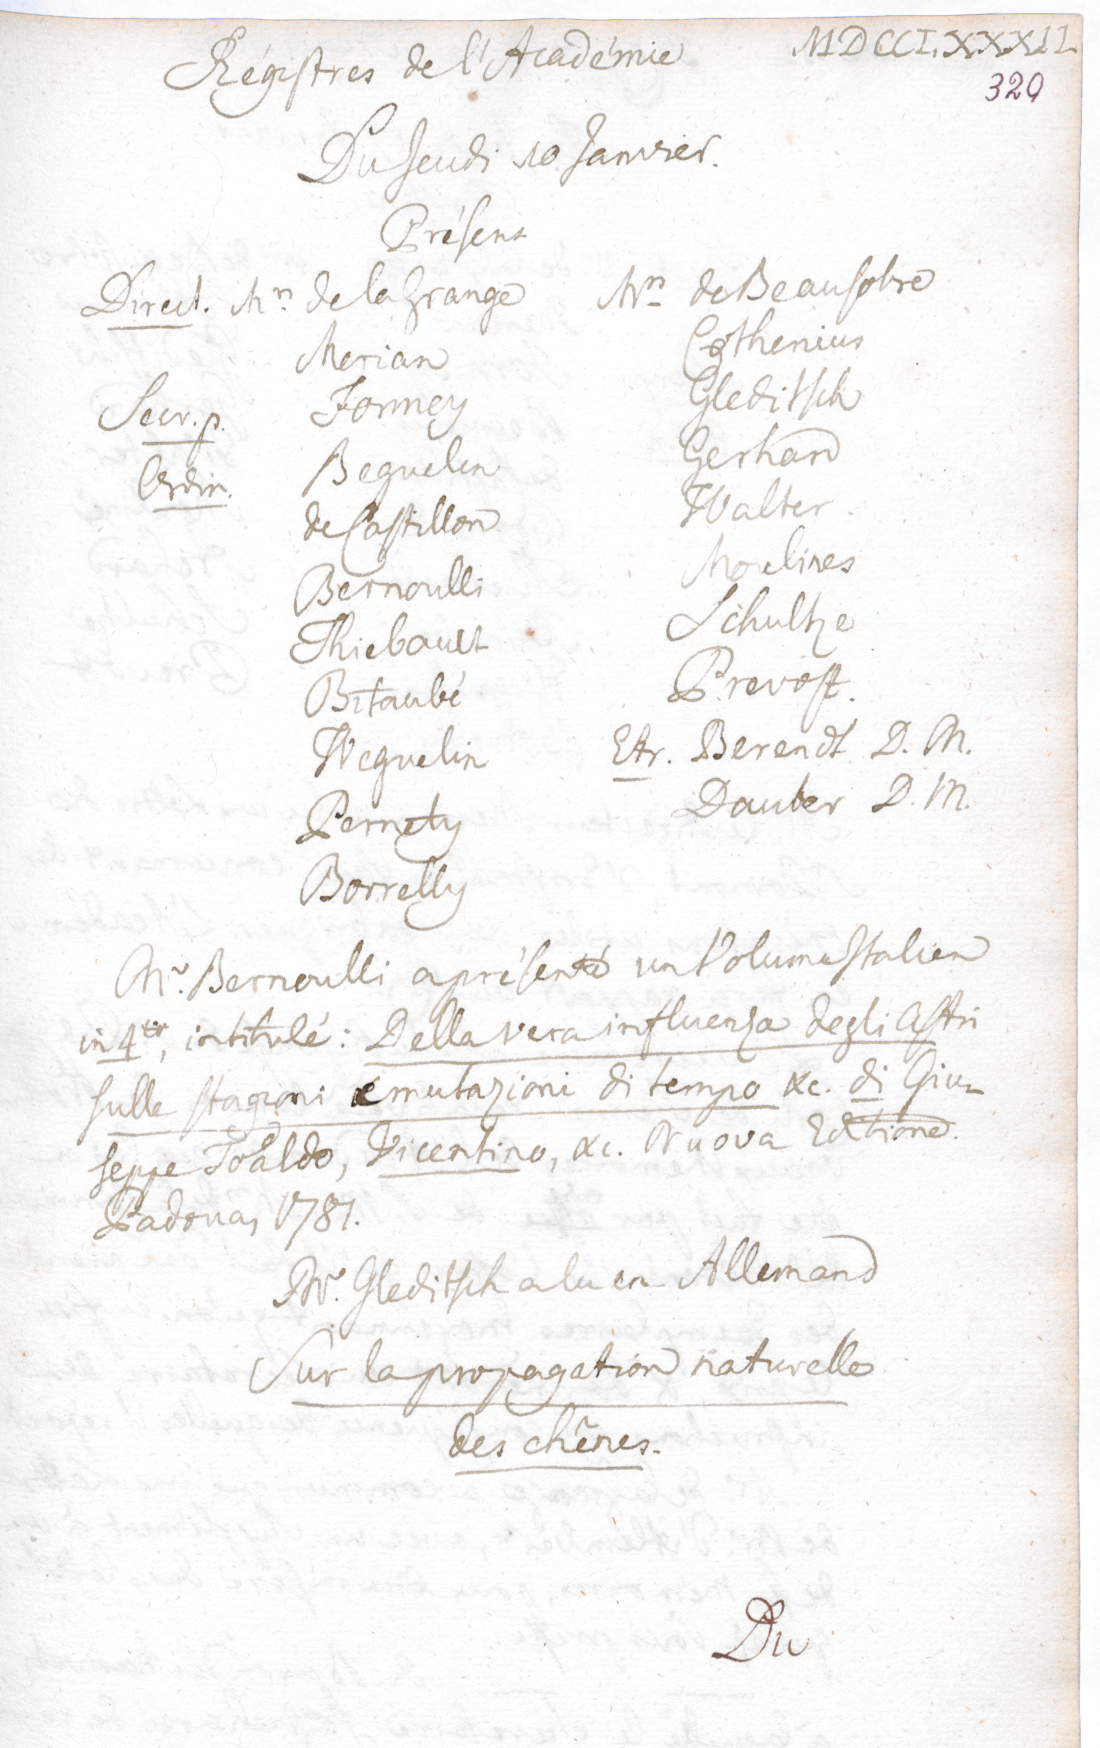 Régistres de l'Académie
MDCCLXXXII
329
Du Jeudi 10 Janvier.
Présens
Direct. Mrs de la Grange
Merian
Secr. p. Formey
Ordin. Beguelin
de Castillon
Bernoulli
Thiebault
Bitaubé
Weguelin
Pernety
Borrelly
Mrs de Beausobre
Cothenius
Gleditsch
Gerhard
Walter
Moulines
Schultze
Prevost.
Etr. Berendt D. M.
Dauber D. M.
Mr. Bernoulli a présenté un Volume Italien
in 4to, intitulé: Della vera influenza degli Astri
sulle stagioni e mutazioni di tempo &c. di Giu-
seppe Toaldo, Vicentino, &c. Nuova Editione.
Padova, 1781.
Mr. Gleditsch a lu en Allemand
Sur la propagation naturelle
des chênes.
Du